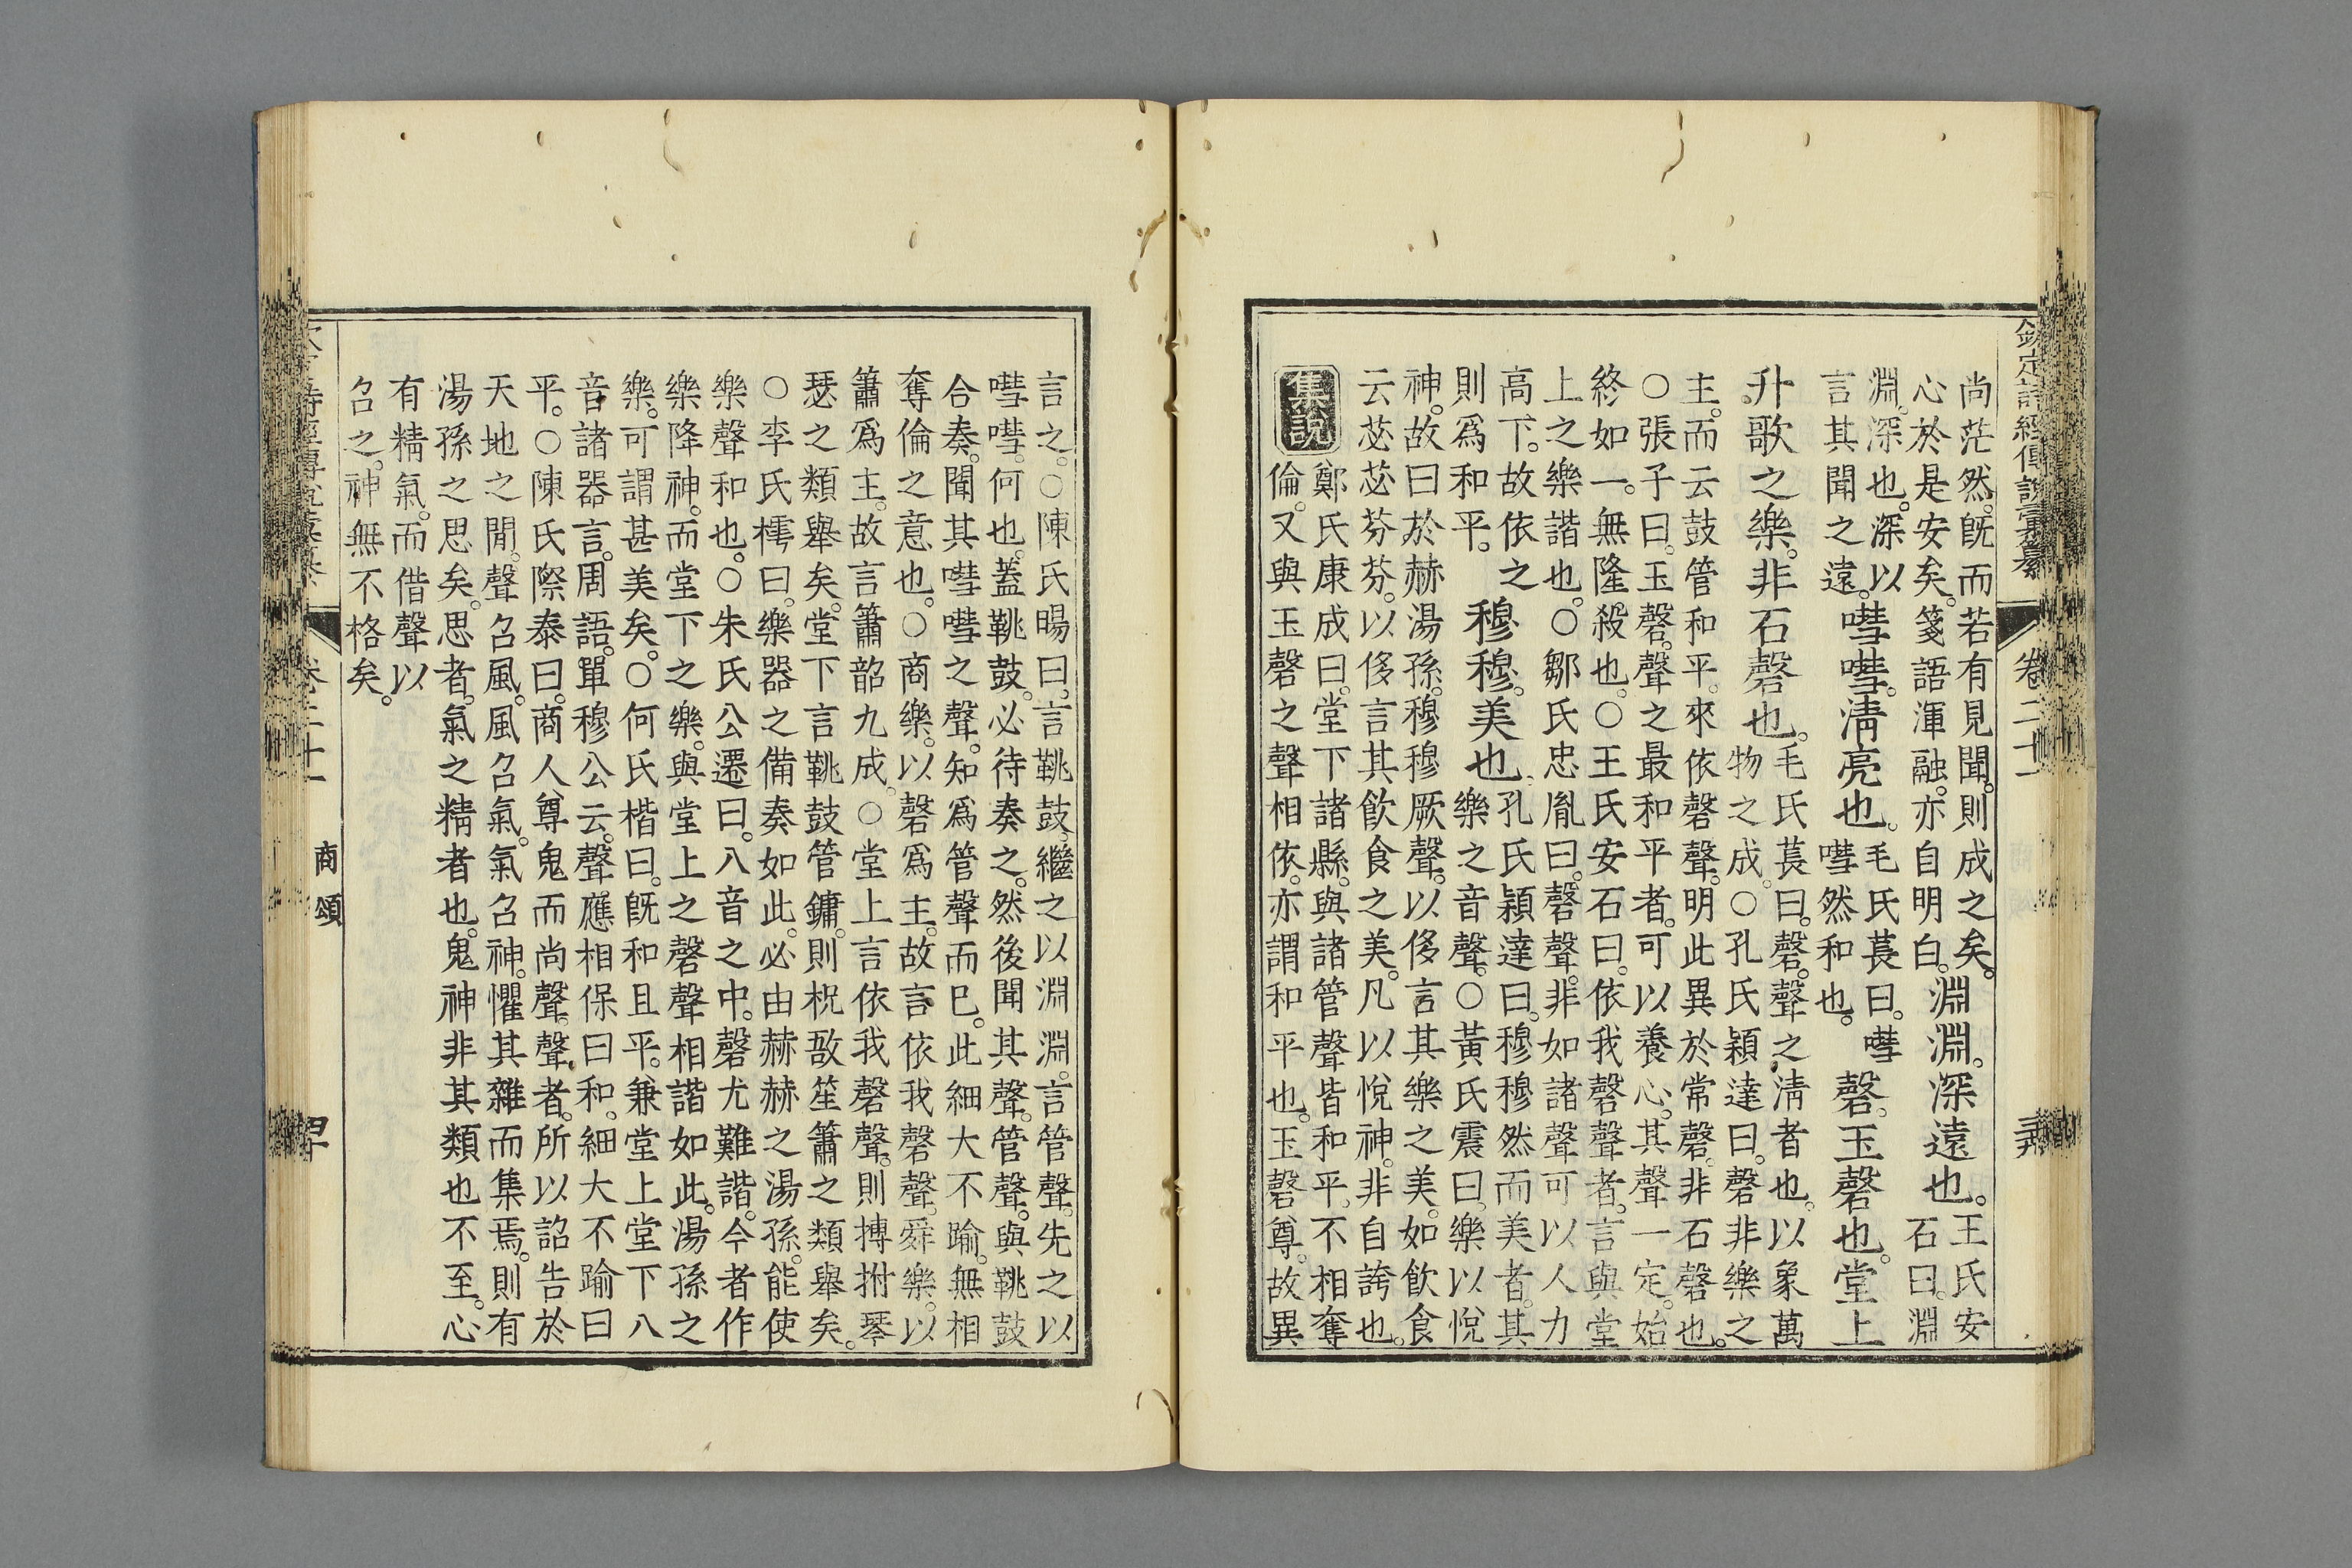 欽定詩經傳說彙纂 卷二十一 丗九
尚茫然。旣而若有見聞。則成之矣。
心於是安矣。箋語渾融。亦自明白。
淵淵。深遠也。
王氏安
石曰。淵
淵。深也。深以
言其聞之遠。
嘒嘒。淸亮也。
毛氏萇曰。嘒
嘒然和也。
磬。玉磬也。堂上
升歌之樂。非石磬也。
毛氏萇曰。磬。聲之淸者也。以象萬
物之成。○孔氏穎達曰。磬非樂之
主。而云鼓管和平。來依磬聲。明此異於常磬。非石磬也。
○張子曰。玉磬。聲之最和平者。可以養心。其聲一定。始
終如一。無隆殺也。○王氏安石曰。依我磬聲者。言與堂
上之樂諧也。○鄒氏忠胤曰。磬聲。非如諸聲可以人力
高下。故依之
則爲和平。
穆穆。美也。
孔氏穎達曰。穆穆然而美者。其
樂之音聲。○黃氏震曰。樂以悅
神。故曰於赫湯孫。穆穆厥聲。以侈言其樂之美。如飮食
云苾苾芬芬。以侈言其飮食之美。凡以悅神。非自誇也。
集說 鄭氏康成曰。堂下諸縣。與諸管聲皆和平。不相奪
倫。又與玉磬之聲相依。亦謂和平也。玉磬尊。故異
言之。○陳氏暘曰。言鞉鼓。繼之以淵淵。言管聲。先之以
嘒嘒。何也。蓋鞉鼓。必待奏之。然後聞其聲。管聲。與鞉鼓
合奏。聞其嘒嘒之聲。知爲管聲而已。此細大不踰。無相
奪倫之意也。○商樂。以磬爲主。故言依我磬聲。舜樂。以
簫爲主。故言簫韶九成。○堂上言依我磬聲。則搏拊琴
瑟之類舉矣。堂下言鞉鼓管鏞。則柷敔笙簫之類舉矣。
○李氏樗曰。樂器之備奏如此。必由赫赫之湯孫。能使
樂聲和也。○朱氏公遷曰。八音之中。磬尤難諧。今者作
樂降神。而堂下之樂。與堂上之磬聲相諧如此。湯孫之
樂。可謂甚美矣。○何氏楷曰。旣和且平。兼堂上堂下八
音諸器言。周語。單穆公云。聲應相保曰和。細大不踰曰
平。○陳氏際泰曰。商人尊鬼而尚聲。聲者。所以詔告於
天地之閒。聲召風。風召氣。氣召神。懼其雜而集焉。則有
湯孫之思矣。思者。氣之精者也。鬼神非其類也不至。心
有精氣。而借聲以
召之。神無不格矣。
商頌